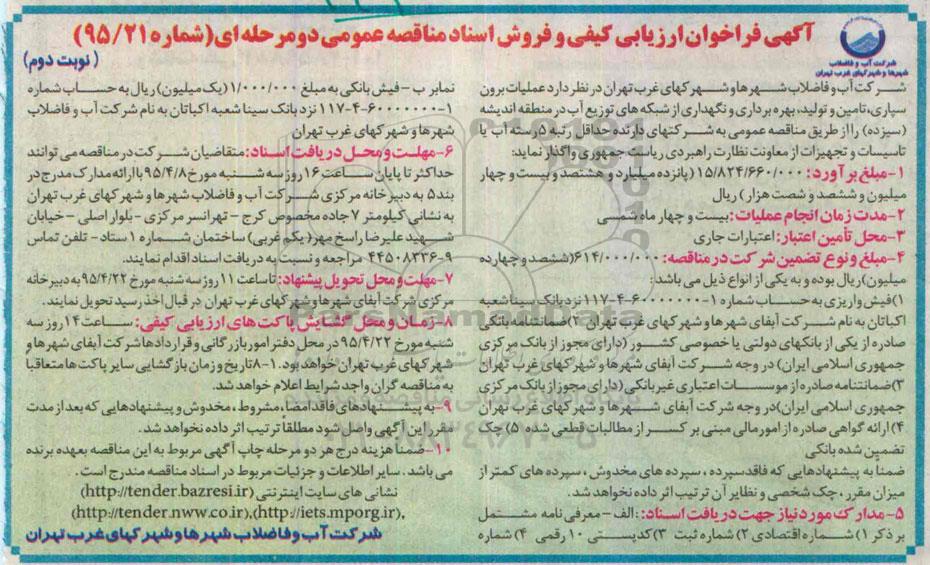 آگهی فراخوان ارزیابی کیفی و فروش اسناد مناقصه عمومی دو مرحله ای (شماره ۹۵/۲۱)
(نوبت دوم)
شرکت آب و فاضلاب
شهرها و شهرکهای غرب تهران
شرکت آب و فاضلاب شهرها و شهرکهای غرب تهران در نظر دارد عملیات برون
سپاری، تامین و تولید، بهره برداری و نگهداری از شبکه های توزیع آب در منطقه اندیشه
(سیزده) را از طریق مناقصه عمومی به شرکتهای دارنده حداقل رتبه ۵ رسته آب یا
تاسیسات و تجهیزات از معاونت نظارت راهبردی ریاست جمهوری واگذار نماید:
۱-مبلغ برآورد: ۱۵/۸۲۴/۶۶۰/۰۰۰ (پانزده میلیارد و هشتصد و بیست و چهار
میلیون و ششصد و شصت هزار) ریال
۲-مدت زمان انجام عملیات: بیست و چهار ماه شمسی
۳-محل تأمین اعتبار: اعتبارات جاری
۴-مبلغ و نوع تضمین شرکت در مناقصه: ۶۱۴/۰۰۰/۰۰۰ (ششصد و چهارده
میلیون) ریال بوده و به یکی از انواع ذیل می باشد:
۱) فیش واریزی به حساب شماره ۱-۶۰۰۰۰۰۰۰-۴-۱۱۷ نزد بانک سینا شعبه
اکباتان به نام شرکت آبفای شهرها و شهرکهای غرب تهران ۲) ضمانتنامه بانکی
صادره از یکی از بانکهای دولتی یا خصوصی کشور (دارای مجوز از بانک مرکزی
جمهوری اسلامی ایران) در وجه شرکت آبفای شهرها و شهرکهای غرب تهران
۳) ضمانتنامه صادره از موسسات اعتباری غیربانکی (دارای مجوز از بانک مرکزی
جمهوری اسلامی ایران) در وجه شرکت آبفای شهرها و شهرکهای غرب تهران
۴) ارائه گواهی صادره از امور مالی مبنی بر کسر از مطالبات قطعی شده ۵) چک
تضمین شده بانکی
ضمنا به پیشنهادهایی که فاقد سپرده، سپرده های مخدوش، سپرده های کمتر از
میزان مقرر، چک شخصی و نظایر آن ترتیب اثر داده نخواهد شد.
۵-مدارک مورد نیاز جهت دریافت اسناد: الف- معرفی نامه مشتمل
بر ذکر ۱) شماره اقتصادی ۲) شماره ثبت ۳) کدپستی ۱۰ رقمی ۴) شماره
نمابر ب- فیش بانکی به مبلغ ۱/۰۰۰/۰۰۰ (یک میلیون) ریال به حساب شماره
۱-۶۰۰۰۰۰۰۰-۴-۱۱۷ نزد بانک سینا شعبه اکباتان به نام شرکت آب و فاضلاب
شهرها و شهرکهای غرب تهران
۶-مهلت و محل دریافت اسناد: متقاضیان شرکت در مناقصه می توانند
حداکثر تا پایان ساعت ۱۶ روز سه شنبه مورخ ۹۵/۴/۸ با ارائه مدارک مدرج در
بند ۵ به دبیرخانه مرکزی شرکت آب و فاضلاب شهرها و شهرکهای غرب تهران
به نشانی کیلومتر ۷ جاده مخصوص کرج - تهرانسر مرکزی - بلوار اصلی - خیابان
شهید علیرضا راسخ مهر (یکم غربی) ساختمان شماره ۱ ستاد- تلفن تماس
۹-۴۴۵۰۸۳۳۶ مراجعه و نسبت به دریافت اسناد اقدام نمایند.
۷-مهلت و محل تحویل پیشنهاد: تا ساعت ۱۱ روز سه شنبه مورخ ۹۵/۴/۲۲ به دبیرخانه
مرکزی شرکت آبفای شهرها و شهرکهای غرب تهران در قبال اخذ رسید تحویل نمایند.
۸-زمان و محل گشایش پاکت های ارزیابی کیفی: ساعت ۱۴ روز سه
شنبه مورخ ۹۵/۴/۲۲ در محل دفتر امور بازرگانی و قراردادها شرکت آبفای شهرها و
شهرکهای غرب تهران خواهد بود. ۸-۱ تاریخ و زمان بازگشایی سایر پاکت ها متعاقبا
به مناقصه گران واجد شرایط اعلام خواهد شد.
۹-به پیشنهادهای فاقد امضا، مشروط، مخدوش و پیشنهادهایی که بعد از مدت
مقرر این آگهی واصل شود مطلقاً ترتیب اثر داده نخواهد شد.
۱۰-ضمنا هزینه درج هر دو مرحله چاپ آگهی مربوط به این مناقصه بعهده برنده
می باشد. سایر اطلاعات و جزئیات مربوط در اسناد مناقصه مندرج است.
نشانی های سایت اینترنتی (http://tender.bazresi.ir)
(http://tender.nww.co.ir),(http://iets.mporg.ir),
شرکت آب و فاضلاب شهرها و شهرکهای غرب تهران
ParsNamadData